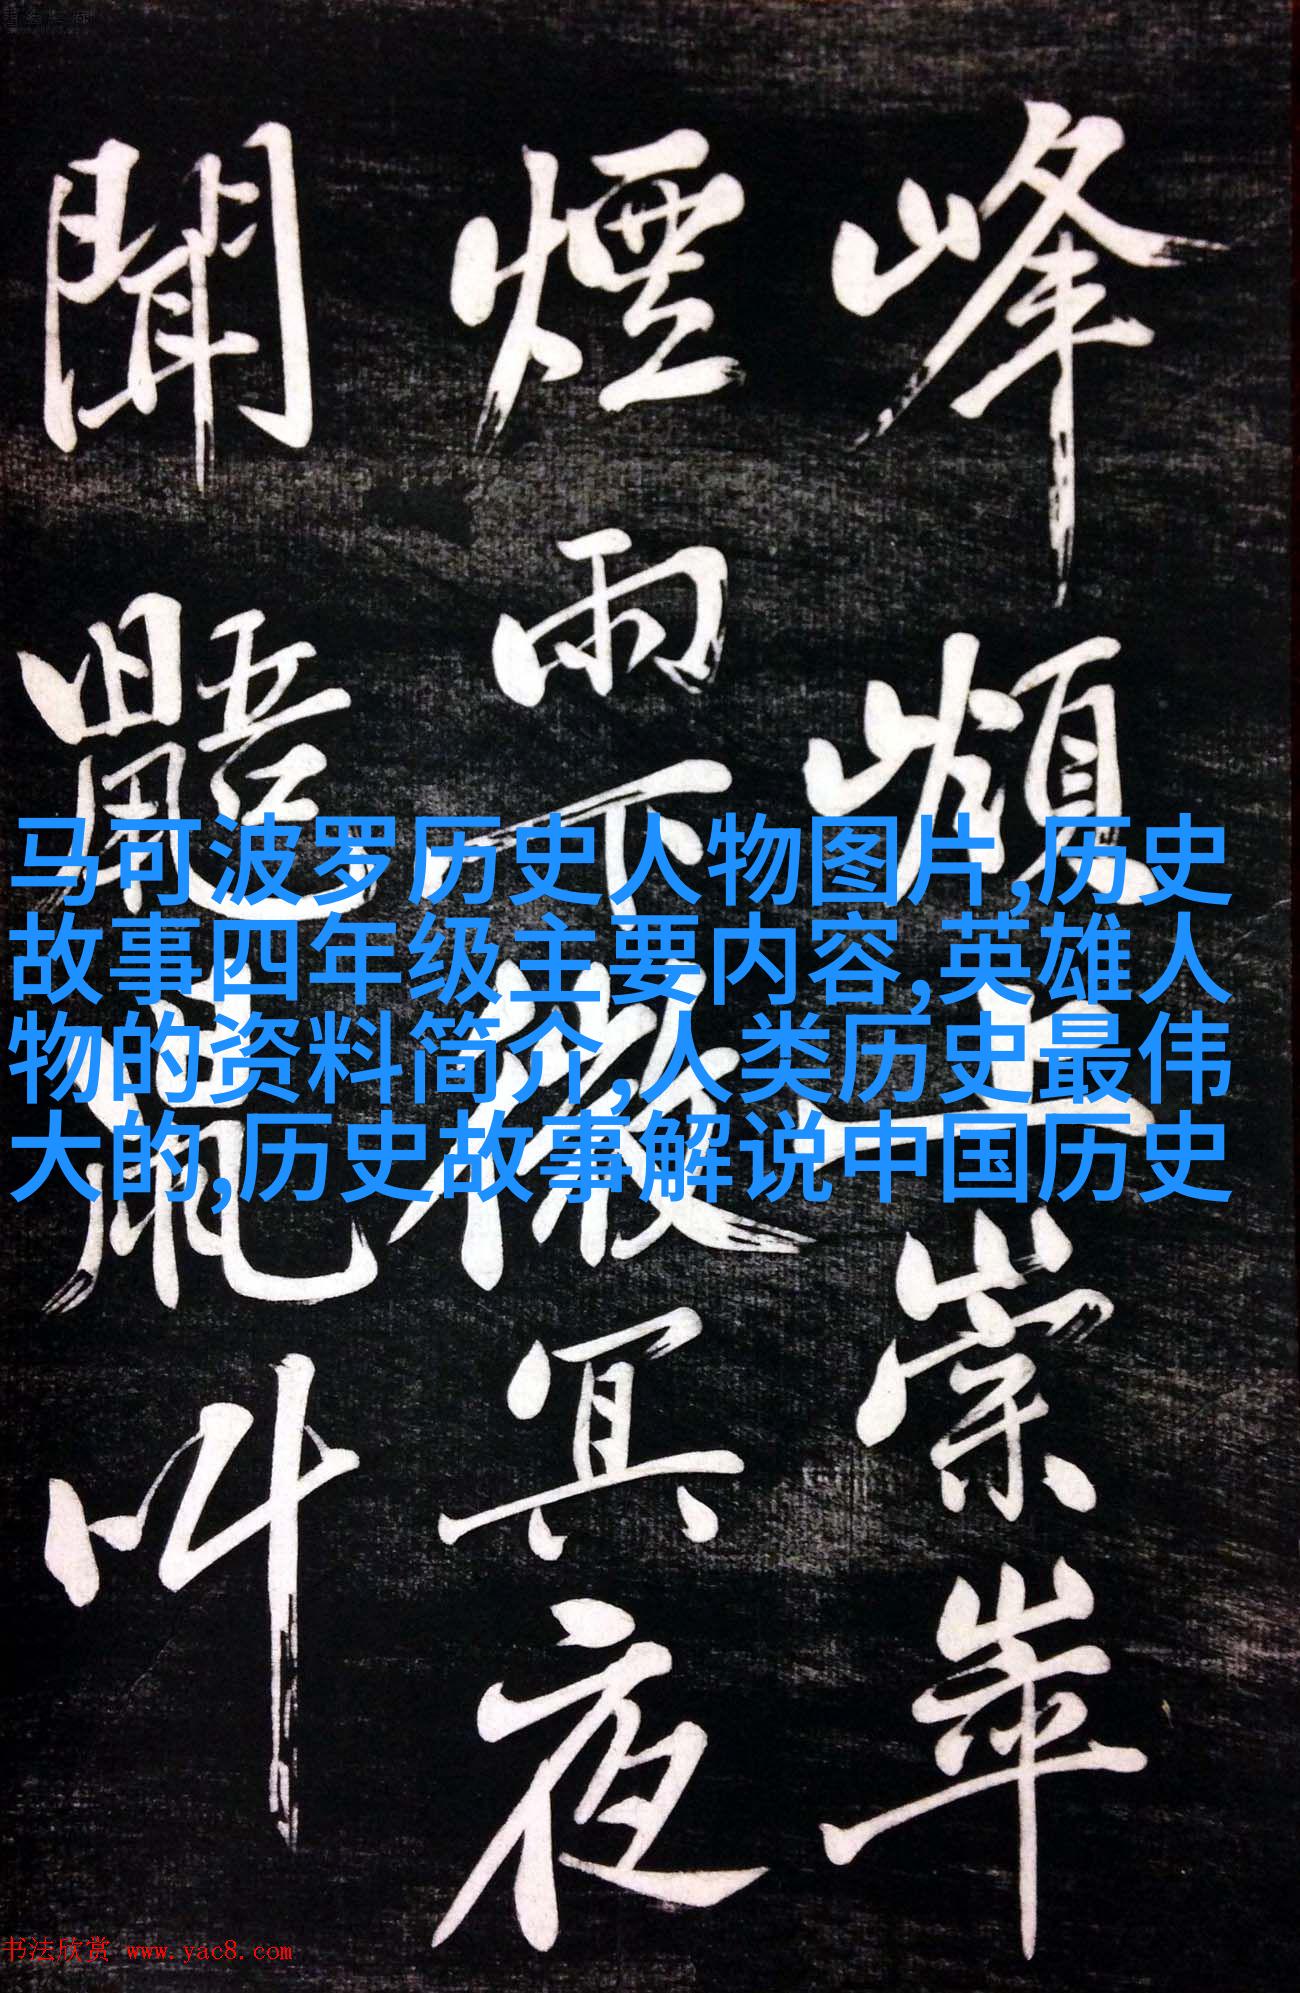 峰 上崇崒
煙雨下微冥夜
聞鼯鼠叫
马可波罗历史人物图片,历史
故事四年级主要内容,英雄人
物的资料简介,人类历史最伟
大的,历史故事解说中国历史
书法欣赏 www.yac8.com